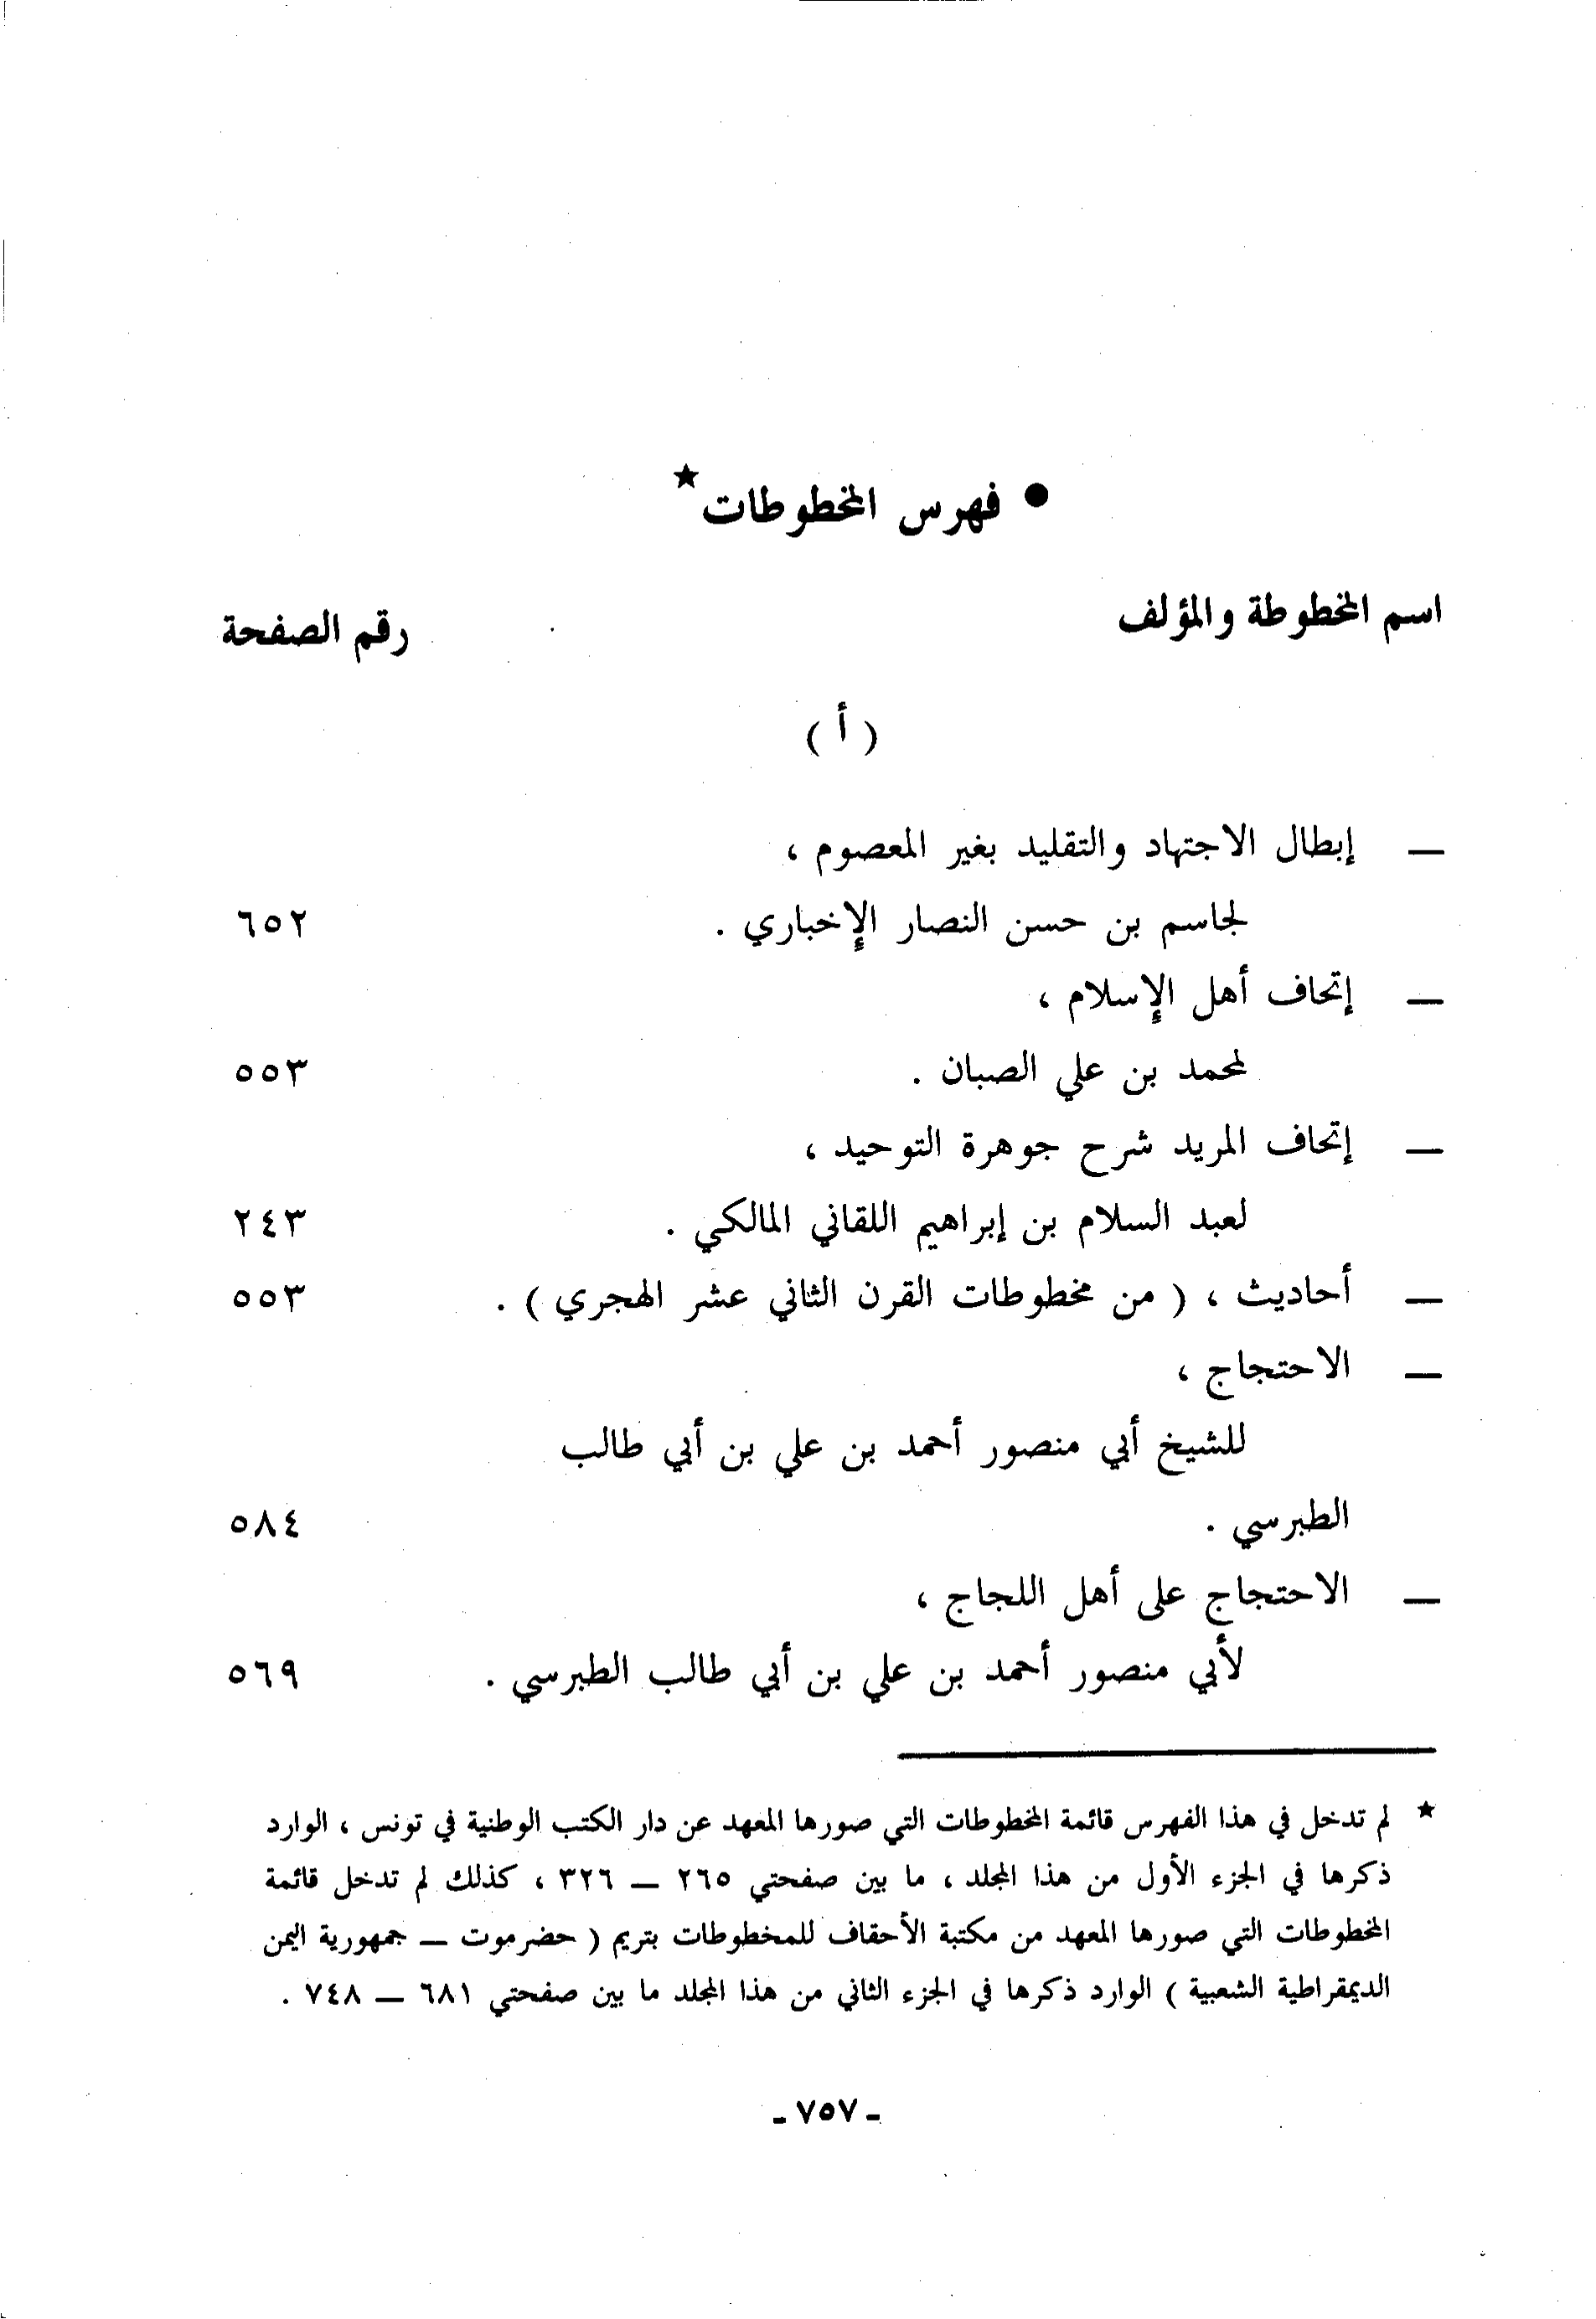 ● فهرس المخطوطات★
اسم المخطوطة والمؤلف رقم الصفحة
( أ )
— إبطال الاجتهاد والتقليد بغير المعصوم ،
لجاسم بن حسن النصار الإخباري . ٦٥٢
— إتحاف أهل الإسلام ،
لمحمد بن علي الصبان . ٥٥٣
— إتحاف المريد شرح جوهرة التوحيد ،
لعبد السلام بن إبراهيم اللقاني المالكي . ٢٤٣
— أحاديث ، ( من مخطوطات القرن الثاني عشر الهجري ) . ٥٥٣
— الاحتجاج ،
للشيخ أبي منصور أحمد بن علي بن أبي طالب
الطبرسي . ٥٨٤
— الاحتجاج على أهل اللجاج ،
لأبي منصور أحمد بن علي بن أبي طالب الطبرسي . ٥٦٩
★ لم تدخل في هذا الفهرس قائمة المخطوطات التي صورها المعهد عن دار الكتب الوطنية في تونس ، الوارد
ذكرها في الجزء الأول من هذا المجلد ، ما بين صفحتي ٢٦٥ — ٣٢٦ ، كذلك لم تدخل قائمة
المخطوطات التي صورها المعهد من مكتبة الأحقاف للمخطوطات بتريم ( حضرموت — جمهورية اليمن
الديمقراطية الشعبية ) الوارد ذكرها في الجزء الثاني من هذا المجلد ما بين صفحتي ٦٨١ — ٧٤٨ .
- ٧٥٧ -